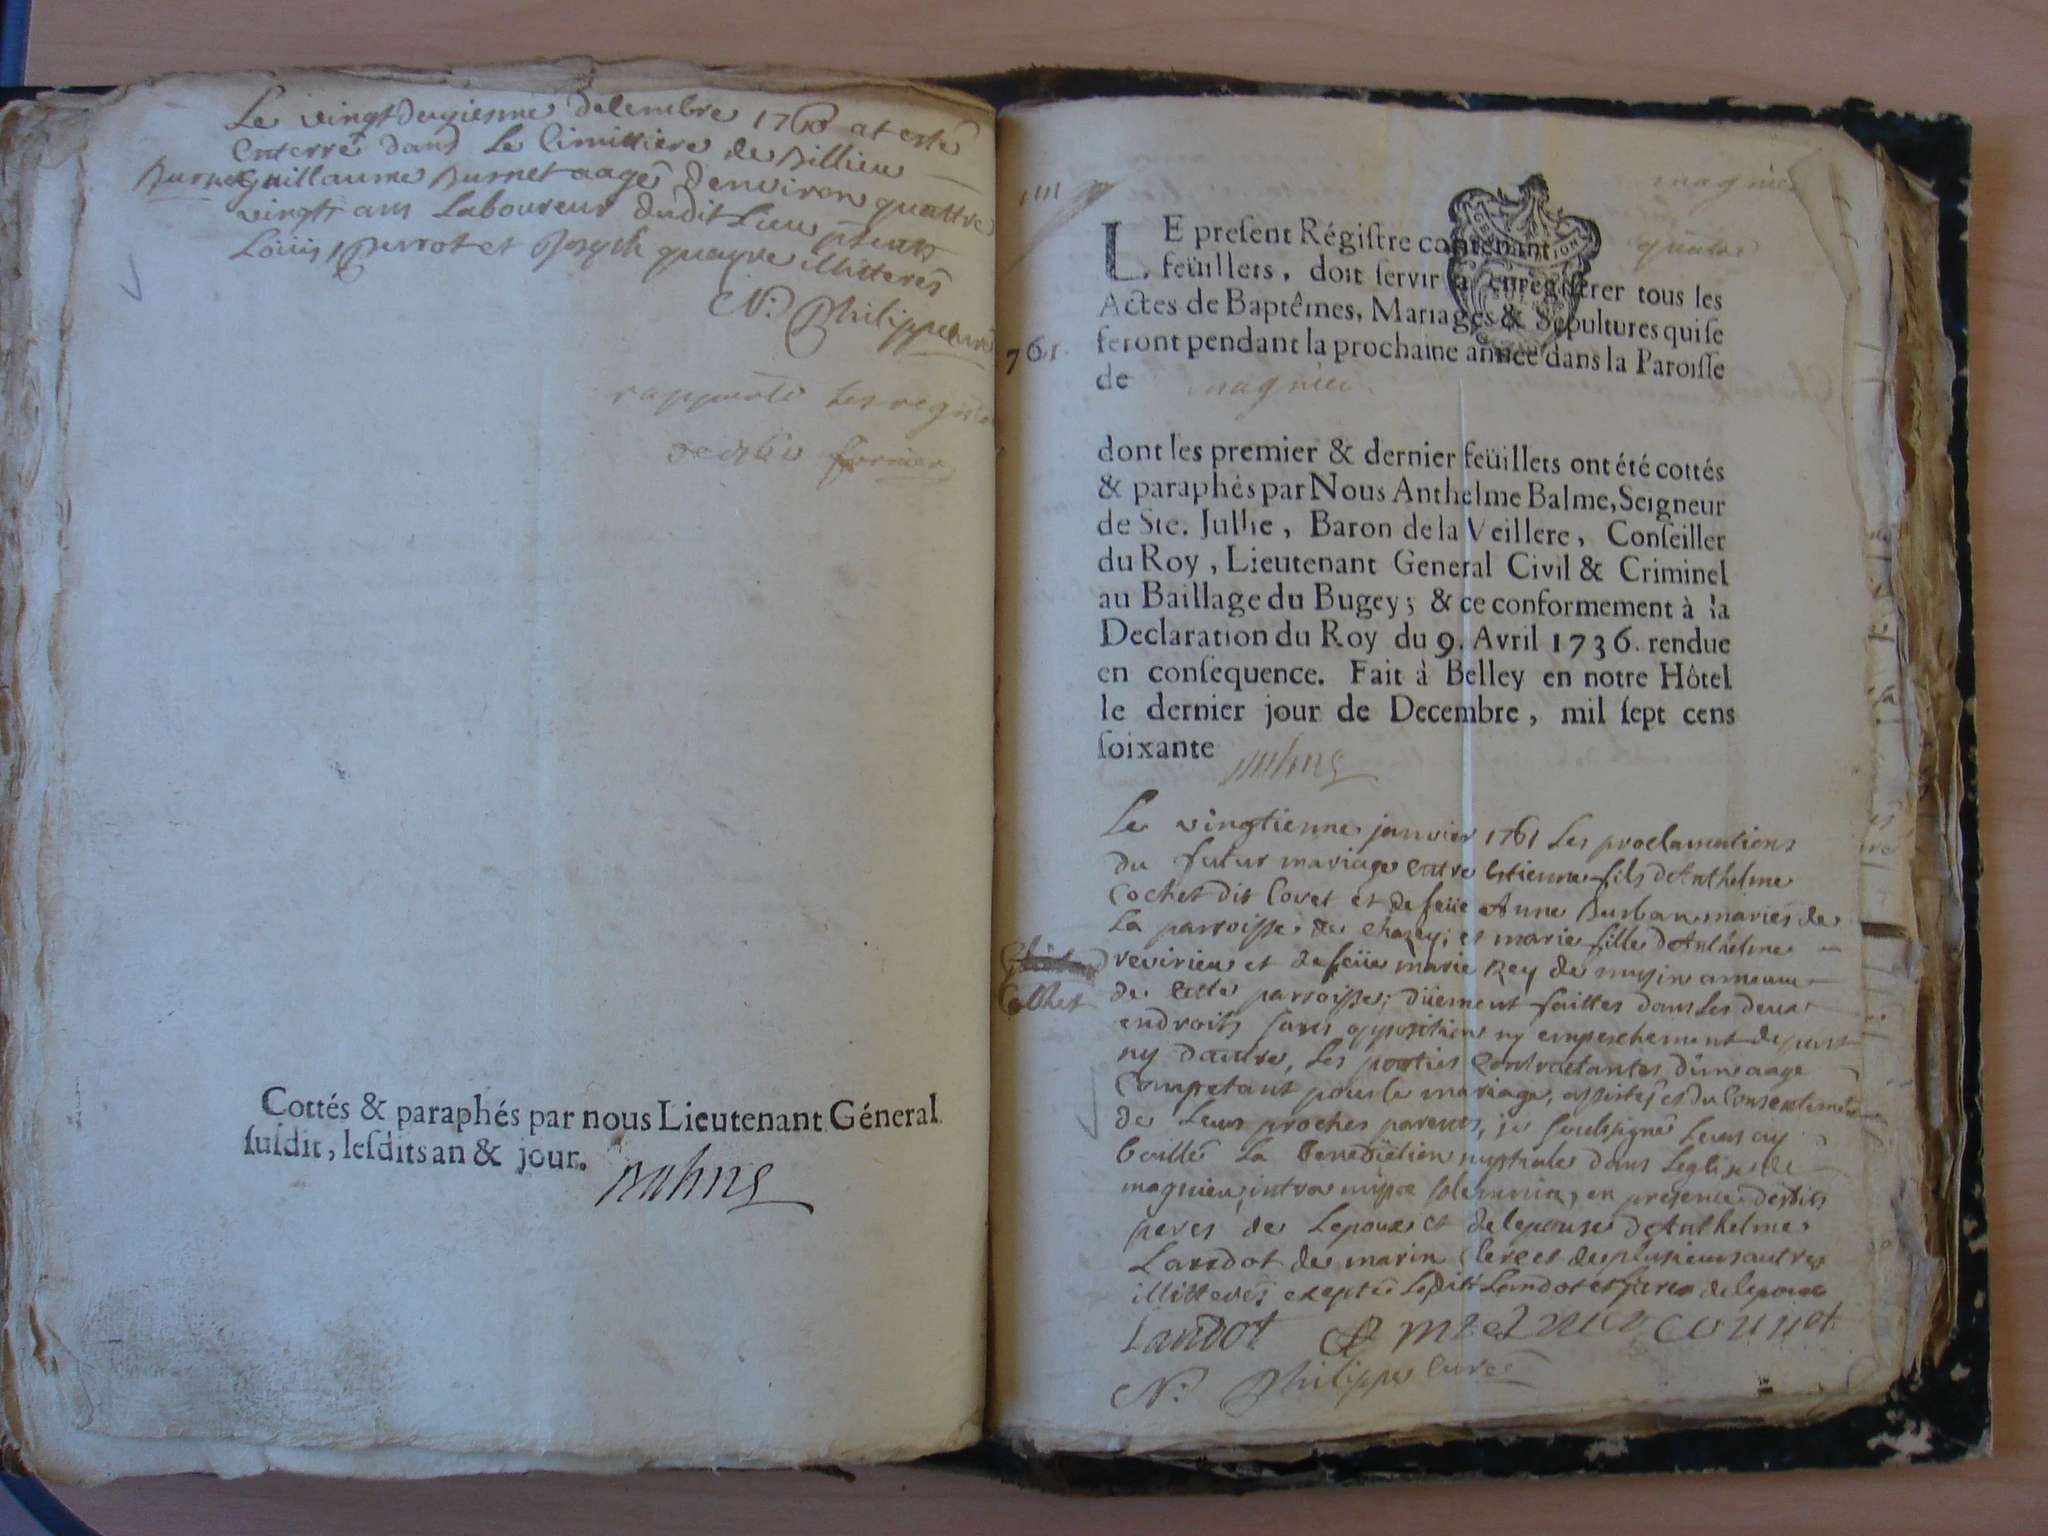 Le vingtdeuxiesme decembre 1760 at esté
enterré dans le Cimittiere de Billieu
Burnet Guillaume Burnet aagé denviron quattre
vingt ans Laboureur dudit Lieu pnts
Loüis Perrot et Joseph quayre illitterés
N. Philippe curé
rapporté les registre
Cottés & paraphés par nous Lieutenant Géneral
ſuſdit, leſdits an & jour.
Balme
magnieu
LE preſent Régiſtre contenant quatre
feüillets, doit ſervir à enregiſtrer tous les
Actes de Baptêmes, Mariages & Sépultures qui ſe
761
feront pendant la prochaine année dans la Paroiſſe
de magnieu
dont les premier & dernier feüillets ont été cottés
& paraphés par Nous Anthelme Balme, Seigneur
de Ste. Julhe, Baron de la Veillere, Conſeiller
du Roy, Lieutenant General Civil & Criminel
au Baillage du Bugey; & ce conformement à la
Declaration du Roy du 9. Avril 1736. rendue
en conſequence. Fait à Belley en notre Hôtel
le dernier jour de Decembre, mil ſept cens
ſoixante Balme
Le vingtienne janvier 1761 Les proclamations
du futur mariage entre Estienne fils dAnthelme
Cochet dit Covet et de feüe Anne Burban mariés de
la parroisse de Chazey; et marie fille dAnthelme
revirieu et de feüe marie Rey de musin annexe
Cochet de cette parroisse; düement faittes dans les deux
endroits sans opposition ny empeschement de part
ny dautre, Les parties Contractantes dûne aage
Competant pour le mariage, assistés et du Consentement
de Leurs proches parents, je soussigné Leurs ay
baillé La benediction nuptiale dans Leglise de
magnieu, intra missæ solemnia, en presence desdits
peres de Lepoux et de lepouse dAnthelme
Landot de marin Clerc et de plusieurs autres
illitterés excepté Ledit Landot et frere de lepoux
Landot
N. Philippe curé